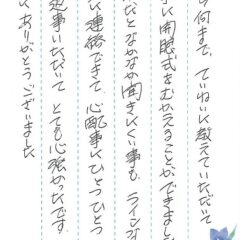 何まで、ていねいに教えていただいて
に開眼式をむかえることができました
だとなかなか聞きにくい事も、ラインな
連絡できて、心配事にひとつひとつ
返事いただいて とても心強かったです。
ありがとうございました